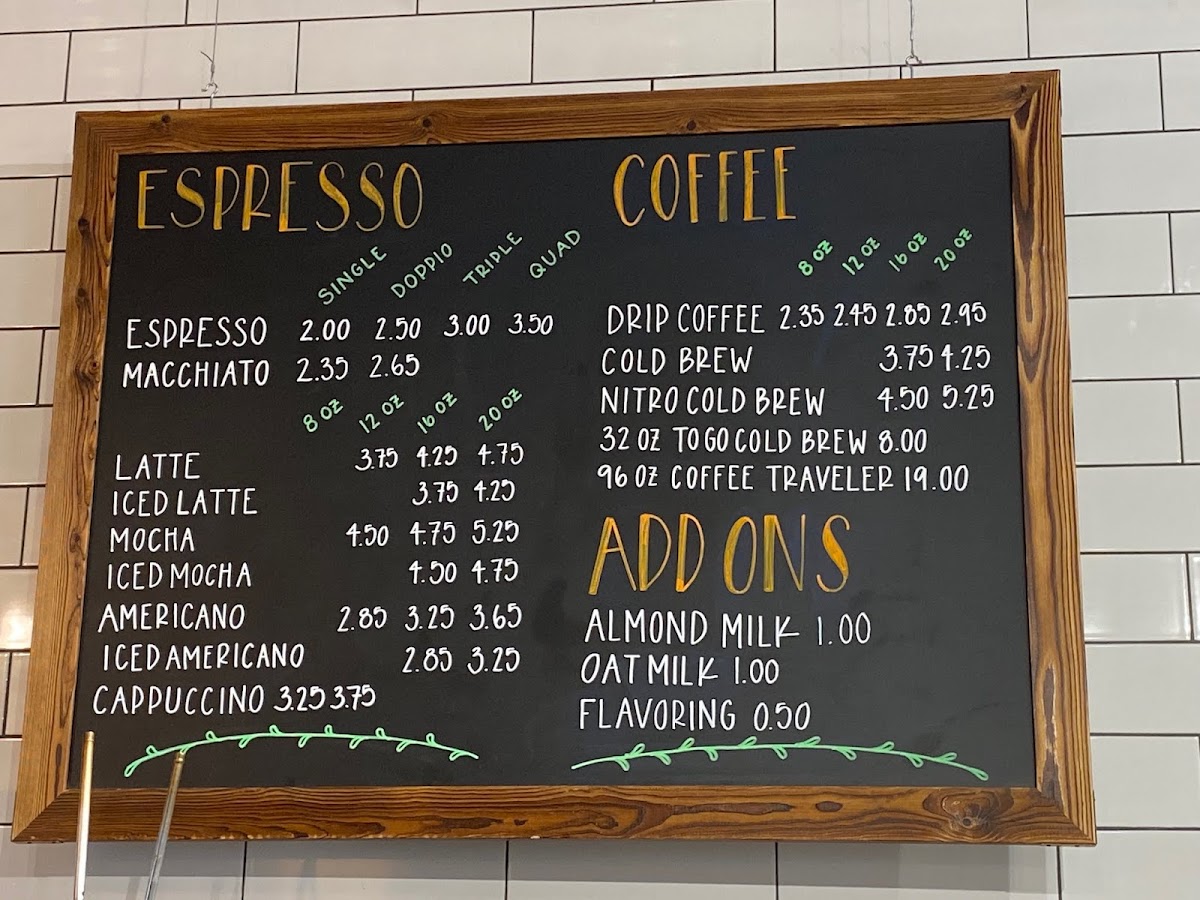 ESPRESSO
SINGLE DOPPIO TRIPLE QUAD
ESPRESSO 2.00 2.50 3.00 3.50
MACCHIATO 2.35 2.65
8 OZ 12 OZ 16 OZ 20 OZ
LATTE 3.75 4.25 4.75
ICED LATTE 3.75 4.25
MOCHA 4.50 4.75 5.25
ICED MOCHA 4.50 4.75
AMERICANO 2.85 3.25 3.65
ICED AMERICANO 2.85 3.25
CAPPUCCINO 3.25 3.75
COFFEE
8 OZ 12 OZ 16 OZ 20 OZ
DRIP COFFEE 2.35 2.45 2.85 2.95
COLD BREW 3.75 4.25
NITRO COLD BREW 4.50 5.25
32 OZ TO GO COLD BREW 8.00
96 OZ COFFEE TRAVELER 19.00
ADD ONS
ALMOND MILK 1.00
OAT MILK 1.00
FLAVORING 0.50